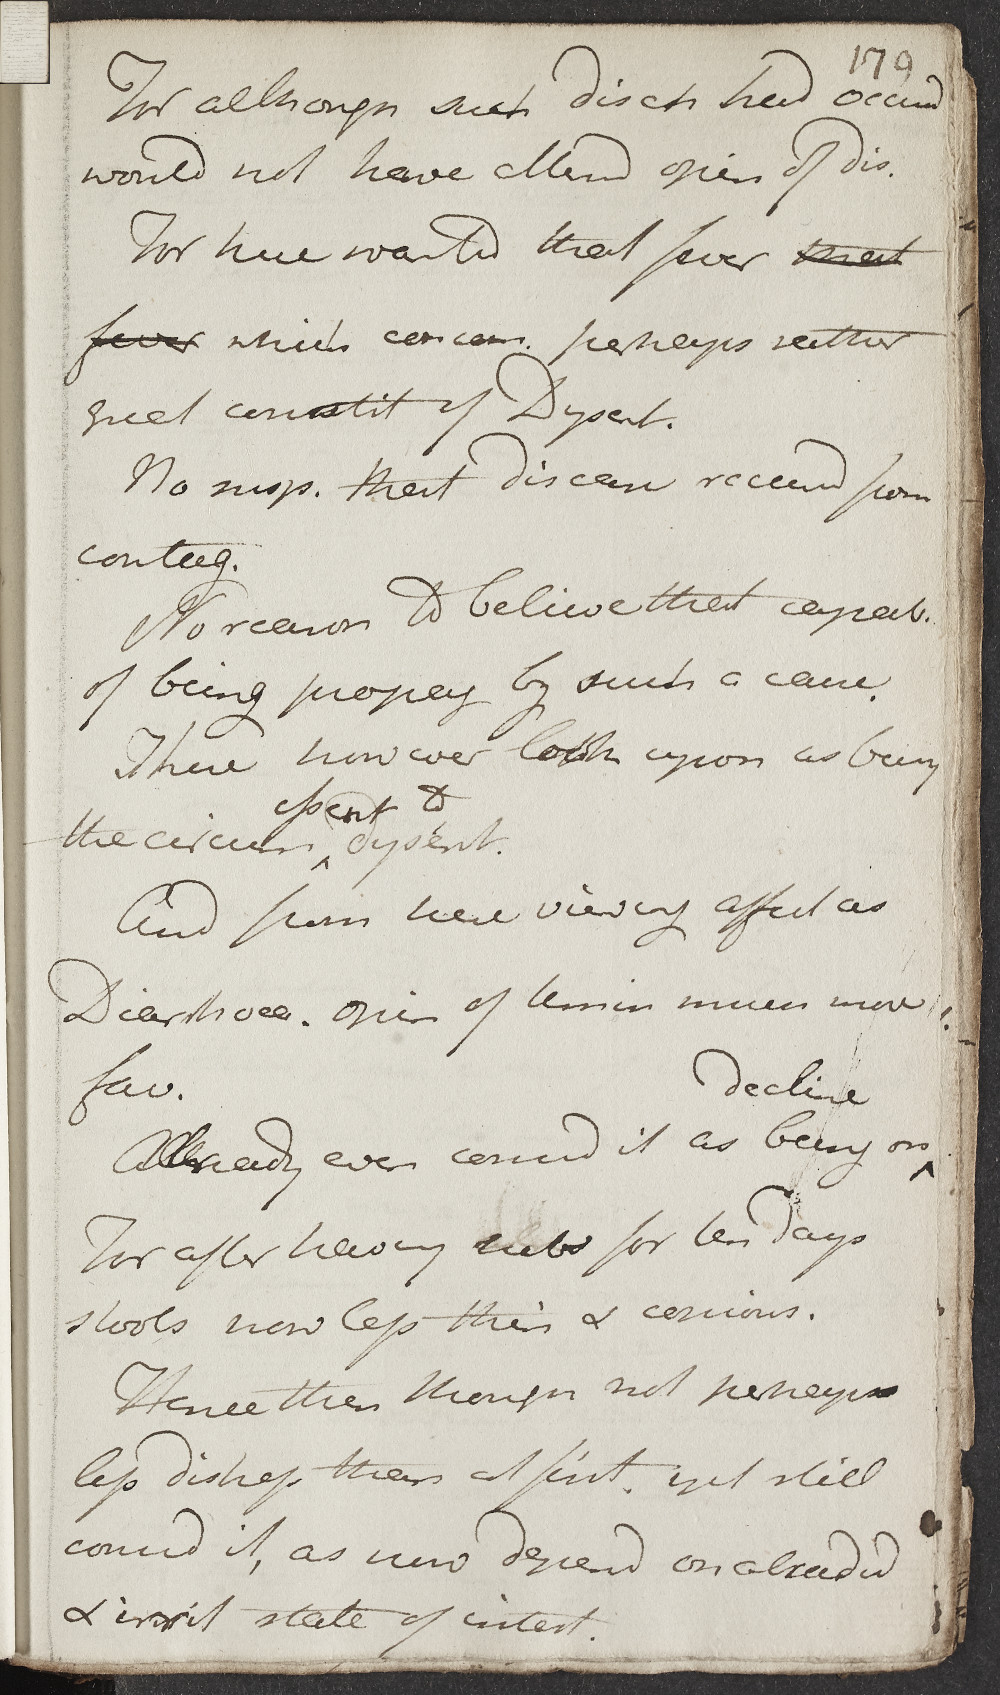 179
For although such disch had occurrd
would not have alterd opin of dis.
For here wanted that fever that
fever which concom. perhaps rather
great constit of Dysent.
No susp. that disease received from
contag.
No reason to believe that capab.
of being propag by such a cause.
These however look upon as being
essent to
the circums ^ dysent.
And from hence viewing affect as
Diarrhoea. opin of termin much more
fav.
decline
Already even consid it as being on ^
For after having subs for ten days
stools now less thin & copious.
Hence then though not perhaps
less distress than at first. yet still
consid it, as now depend on abraded
& irrit state of intest.